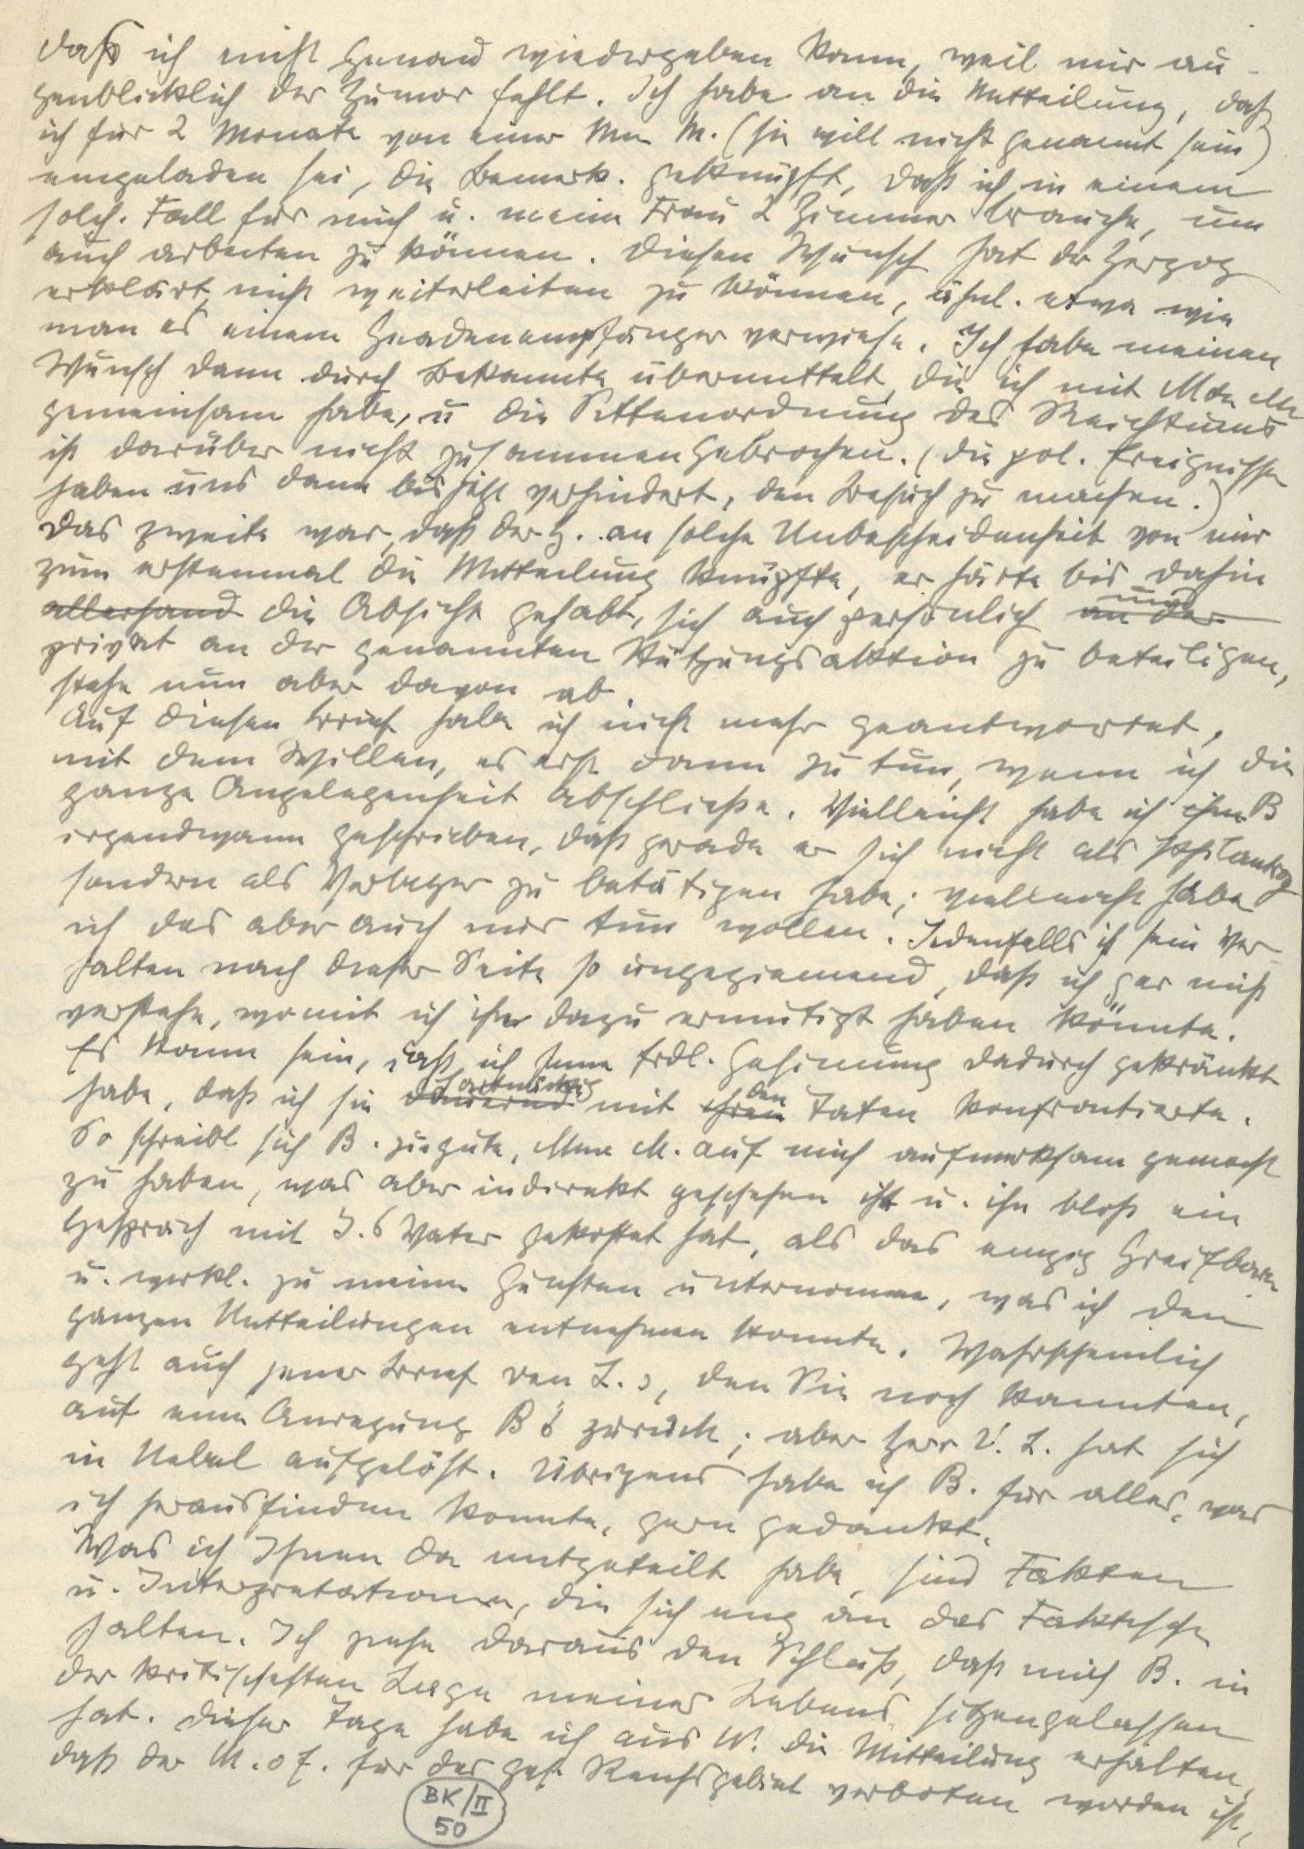 daß ich nicht genau wiedergeben kann, weil mir au-
genblicklich der Humor fehlt. Ich habe an die Mitteilung, daß
ich für 2 Monate von einer Mme M. (sie will nicht genannt sein)
eingeladen sei, die Bemerk. geknüpft, daß ich in einem
solch. Fall für mich u. meine Frau 2 Zimmer brauche, um
auch arbeiten zu können. Diesen Wunsch hat der Herzog
erklärt nicht weiterleiten zu können, ähnl. etwa wie
man es einem Gnadenempfänger verwiese. Ich habe meinen
Wunsch dann durch Bekannte übermittelt die ich mit Mme M
gemeinsam habe, u die Sittenordnung des Reichtums
ist darüber nicht zusammengebrochen. (Die pol. Ereignisse
haben uns dann bis jetzt verhindert, den Besuch zu machen.)
Das zweite war, daß der H. an solche Unbescheidenheit von mir
zum erstenmal die Mitteilung knüpfte, er hätte bis dahin
allerhand die Absicht gehabt, sich auch persönlich an der und
privat an der genannten Stützungsaktion zu beteiligen,
stehe nun aber davon ab.
Auf diesen Brief habe ich nicht mehr geantwortet,
mit dem Willen, es erst dann zu tun, wenn ich die
ganze Angelegenheit abschließe. Vielleicht habe ich ihm B
irgendwann geschrieben, daß gerade er sich nicht als Philantrop
sondern als Verleger zu betätigen habe; vielleicht habe
ich das aber auch nur tun wollen. Jedenfalls ist sein Ver-
halten nach dieser Seite so ungeziemend, daß ich gar nicht
verstehe, womit ich ihn dazu ermutigt haben könnte.
Es kann sein, daß ich seine frdl. Gesinnung dadurch gekränkt
habe, daß ich sie dauernd hartnäckig mit ihren den Taten konfrontierte.
So schreibt sich B. zugute, Mme M. auf mich aufmerksam gemacht
zu haben, was aber indirekt geschehen ist u. ihn bloß ein
Gespräch mit I.s Vater gekostet hat, als das einzig Greifbare
u. wirkl. zu meinen Gunsten unternommene, was ich den
ganzen Mitteilungen entnehmen konnte. Wahrscheinlich
geht auch jener Brief von L.s, den Sie noch kannten,
auf eine Anregung B s zurück; aber Herr V. L. hat sich
in Nebel aufgelöst. Übrigens habe ich B. für alles, was
ich herausfinden konnte, gern gedankt.
Was ich Ihnen da mitgeteilt habe, sind Fakten
u. Interpretationen, die sich eng an das Faktische
halten. Ich ziehe daraus den Schluß, daß mich B. in
der kritischesten Lage meines Lebens sitzengelassen
hat. Dieser Tage habe ich aus W. die Mitteilung erhalten,
daß der M. o E. für das ges. Reichsgebiet verboten worden ist,
BK/II
50